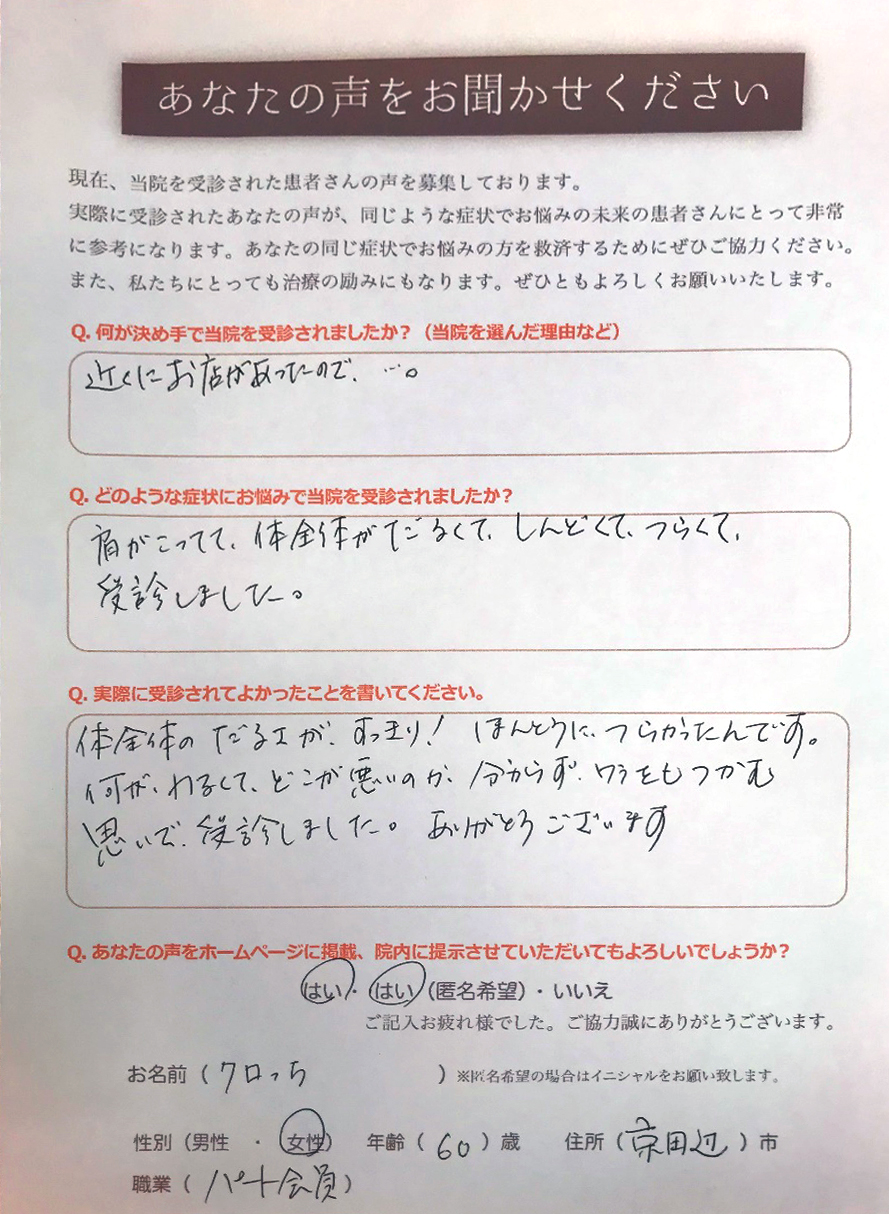 あなたの声をお聞かせください
現在、当院を受診された患者さんの声を募集しております。
実際に受診されたあなたの声が、同じような症状でお悩みの未来の患者さんにとって非常
に参考になります。あなたの同じ症状でお悩みの方を救済するためにぜひご協力ください。
また、私たちにとっても治療の励みにもなります。ぜひともよろしくお願いいたします。
Q. 何が決め手で当院を受診されましたか？（当院を選んだ理由など）
近くにお店があったので、…。
Q. どのような症状にお悩みで当院を受診されましたか？
肩がこってて、体全体がだるくて、しんどくて、つらくて、
受診しました。
Q. 実際に受診されてよかったことを書いてください。
体全体のだるさが、すっきり！ ほんとうに、つらかったんです。
何が、わるくて、どこが悪いのか、分からず、ワラをもつかむ
思いで、受診しました。 ありがとうございます
Q. あなたの声をホームページに掲載、院内に提示させていただいてもよろしいでしょうか？
はい・はい（匿名希望）・いいえ
ご記入お疲れ様でした。ご協力誠にありがとうございます。
お名前（クロっち）※匿名希望の場合はイニシャルをお願い致します。
性別（男性 ・ 女性） 年齢（60）歳 住所（京田辺）市
職業（パート会員）